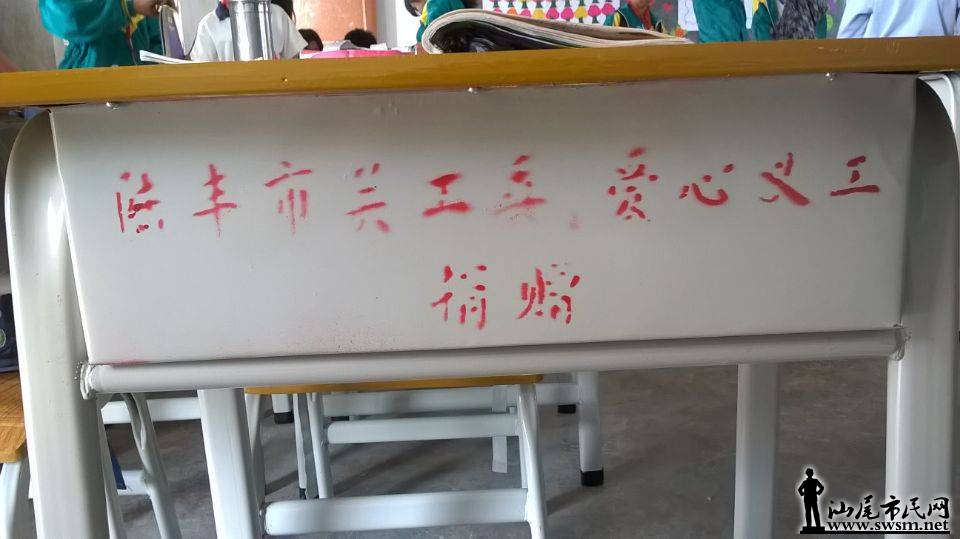 陆丰市关工委、爱心义工
捐赠
汕尾市民网
www.swsm.net